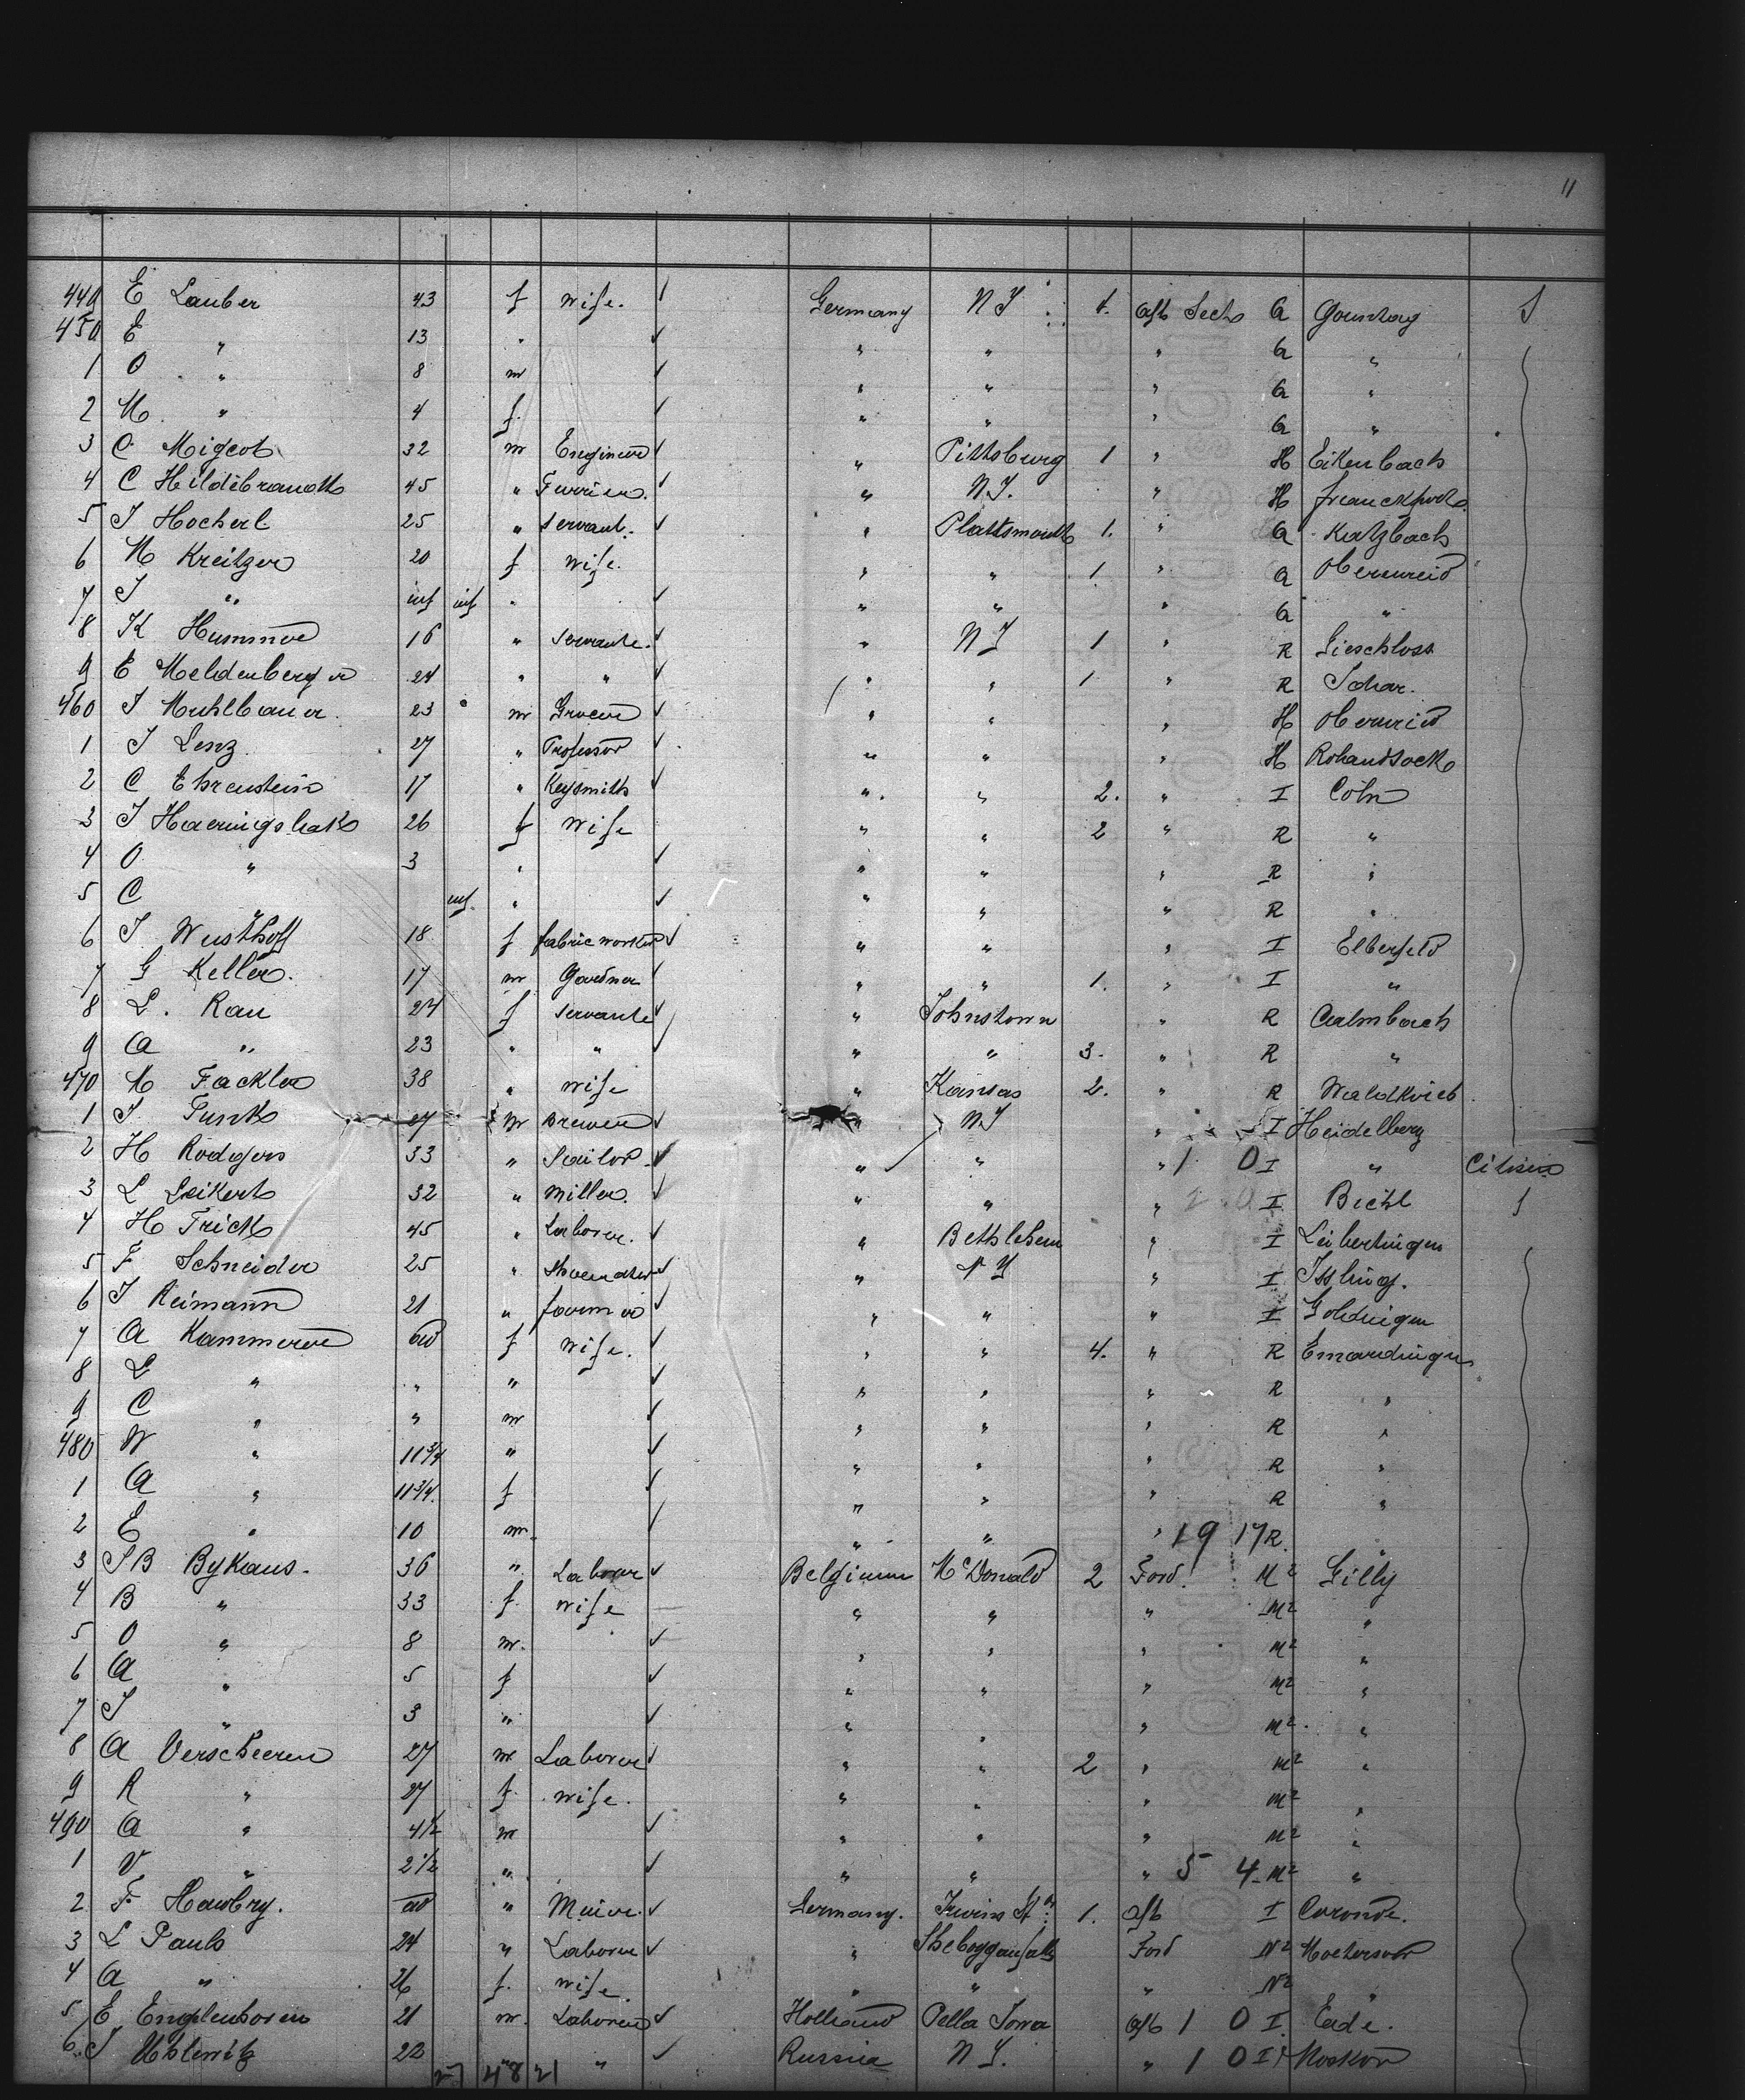 11
449 E Lauber 43 f wife. Germany N Y 1. aft Sects A S
450 E " 13 " " " " A "
1 O " 8 m " " " A "
2 M " 4 f. " " " A "
3 C Migeot 32 m Engineer " Pittsburg 1 " H Eikenbach
4 C Hildebrandt 45 " Furrier. " N.Y. " H franckfurt
5 J Hocherl 25 " Servant. " Plattsmouth 1. " A Katzbach
6 M Kreitzer 20 f wife. " " 1 " A
7 J " inf inf " " " " A "
8 K Hummer 16 " Servant. " N Y 1 " R
9 E 24 " " " " 1 " R
460 J Muhlbauer. 23 m Grocer " " " H
1 J Lenz. 27 " Professor " " " H
2 C Ehrenstein 17 " Keysmith " " 2. " I Cöln
3 J 26 f wife " " 2 " R "
4 O " 3 " " " " R "
5 C " inf. " " " " R "
6 J Wusthoff 18 f fabric worker " " " I Elberfeld
7 G Keller. 17 m Gardner " " 1. " I "
8 L. Rau 24 f Servant " Johnstown " R Calmbach
9 A " 23 " " " " 3. " R "
470 M Fackler 38 " wife " Kansas 2. " R
1 J Funk 27 m Brewer " N Y " I Heidelberg
2 H Rodgers 33 " Sailor " " " 1 0 I " Citisen
3 L Leikert 32 " Miller. " " " I Biehl S
4 H Frick 45 " Laborer. " Bethlehem " I Leibertingen
5 F Schneider 25 " Shoemaker " N Y " I
6 J Reimann 21 " farmer " " " I
7 A Kammerer ad f wife. " " 4. " R
8 L " " " " " " R "
9 C " " m " " " R "
480 W " 11 3/4 " " " " R "
1 A " 11 3/4. f " " " R "
2 E " 10 m. " " " 19 17 R. "
3 J B Bykaus. 36 " Laborer Belgium McDonald 2 Ford. M2 Gilly
4 B " 33 f. wife " " " M2 "
5 O " 8 m. " " " M2 "
6 A " 5 f " " " M2 "
7 J " 3 " " " " M2 "
8 A Verscheeren 27 m Laborer " " 2 " M2 "
9 R " 27 f. wife. " " " M2 "
490 A " 4 1/2 m " " " M2 "
1 V " 2 1/2 " " " " 5 4 M2 "
2 F ad " Miner. Germany. 1. aft I
3 L Pauls 24 " Laborer " Sheboyganfalls Ford N2
4 A " 26 f. wife. " " " N2 "
5 E Englenhoven 21 m. Laborer Holland Pella Iowa aft 1 0 I. Eede.
6 J 22 " Russia N Y. " 1 0 I Moskow
27 48 21